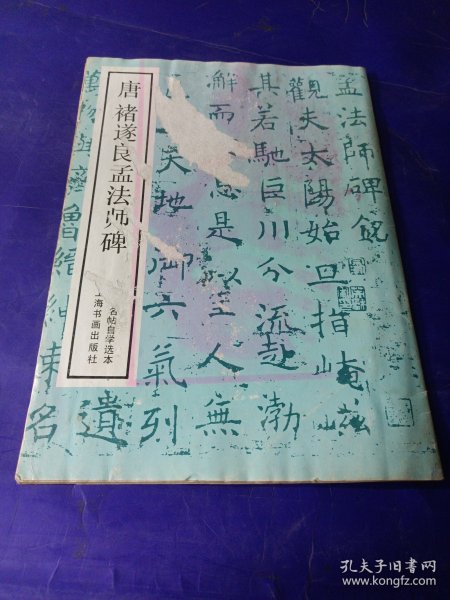 唐 褚遂良孟法师碑
名帖自学选本
海书画出版社
孟法師碑
觀夫太陽始旦指崦嵫
其若馳巨川分流赴渤
澥而息是以至人無
天地御六氣列
遺
魯縉紳束名
孔夫子旧书网
www.kongfz.com